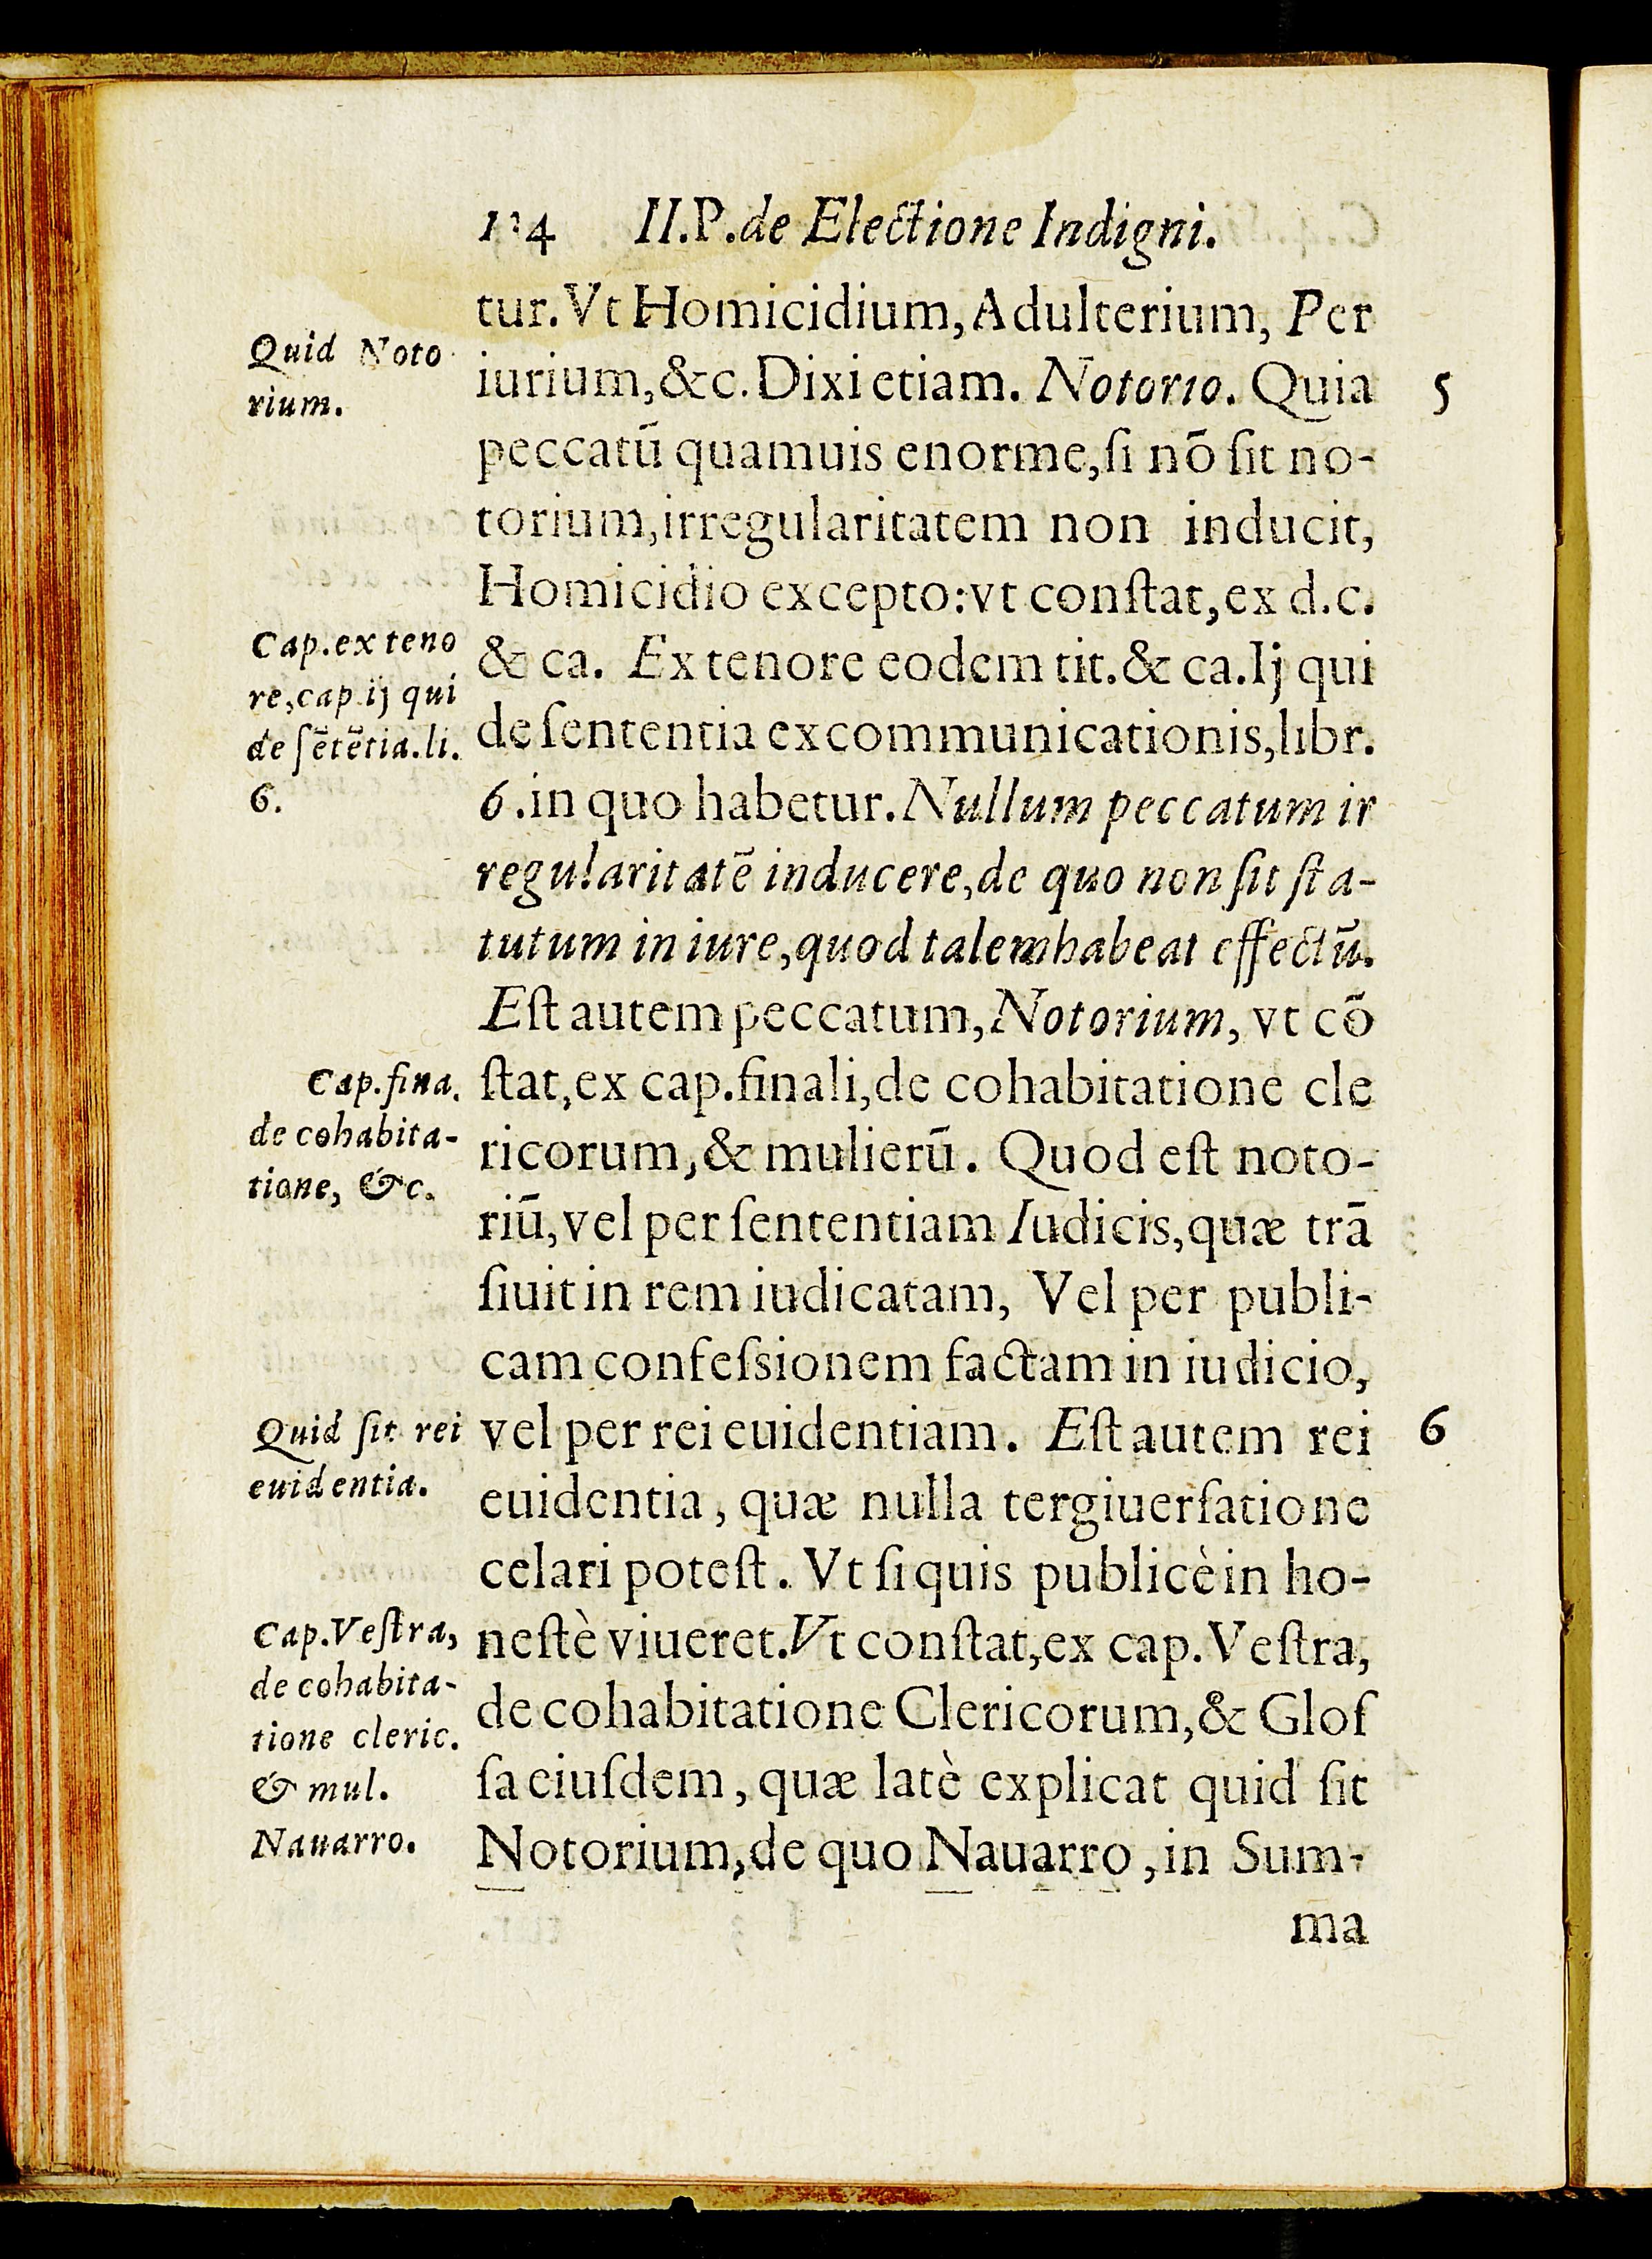 134 II.P.de Electione Indigni.
tur.Vt Homicidium,Adulterium, Per
iurium,&c.Dixi etiam. Notorio. Quia
peccatū quamuis enorme,ſi nō ſit no-
torium,irregularitatem non inducit,
Homicidio excepto:vt conſtat,ex d.c.
& ca. Ex tenore eodem tit.& ca.Ij qui
de ſententia excommunicationis,libr.
6.in quo habetur.Nullum peccatum ir
regularitatē inducere,de quo non ſit ſta-
tutum in iure,quod talem habeat effectū.
Eſt autem peccatum,Notorium, vt cō
ſtat,ex cap.finali,de cohabitatione cle
ricorum,& mulierū. Quod eſt noto-
riū,vel per ſententiam Iudicis,quæ trā
ſiuit in rem iudicatam, Vel per publi-
cam confeſsionem factam in iudicio,
vel per rei euidentiam. Eſt autem rei
euidentia, quæ nulla tergiuerſatione
celari poteſt. Vt ſi quis publicè in ho-
neſtè viueret.Vt conſtat,ex cap.Veſtra,
de cohabitatione Clericorum,& Gloſ
ſa eiuſdem, quæ latè explicat quid ſit
Notorium,de quo Nauarro, in Sum-
ma
Quid Noto
rium.
Cap.ex teno
re,cap.ij qui
de ſētētia.li.
6.
Cap.fina.
de cohabita-
tione, &c.
Quid ſit rei
euidentia.
Cap.Veſtra,
de cohabita-
tione cleric.
& mul.
Nauarro.
5
6